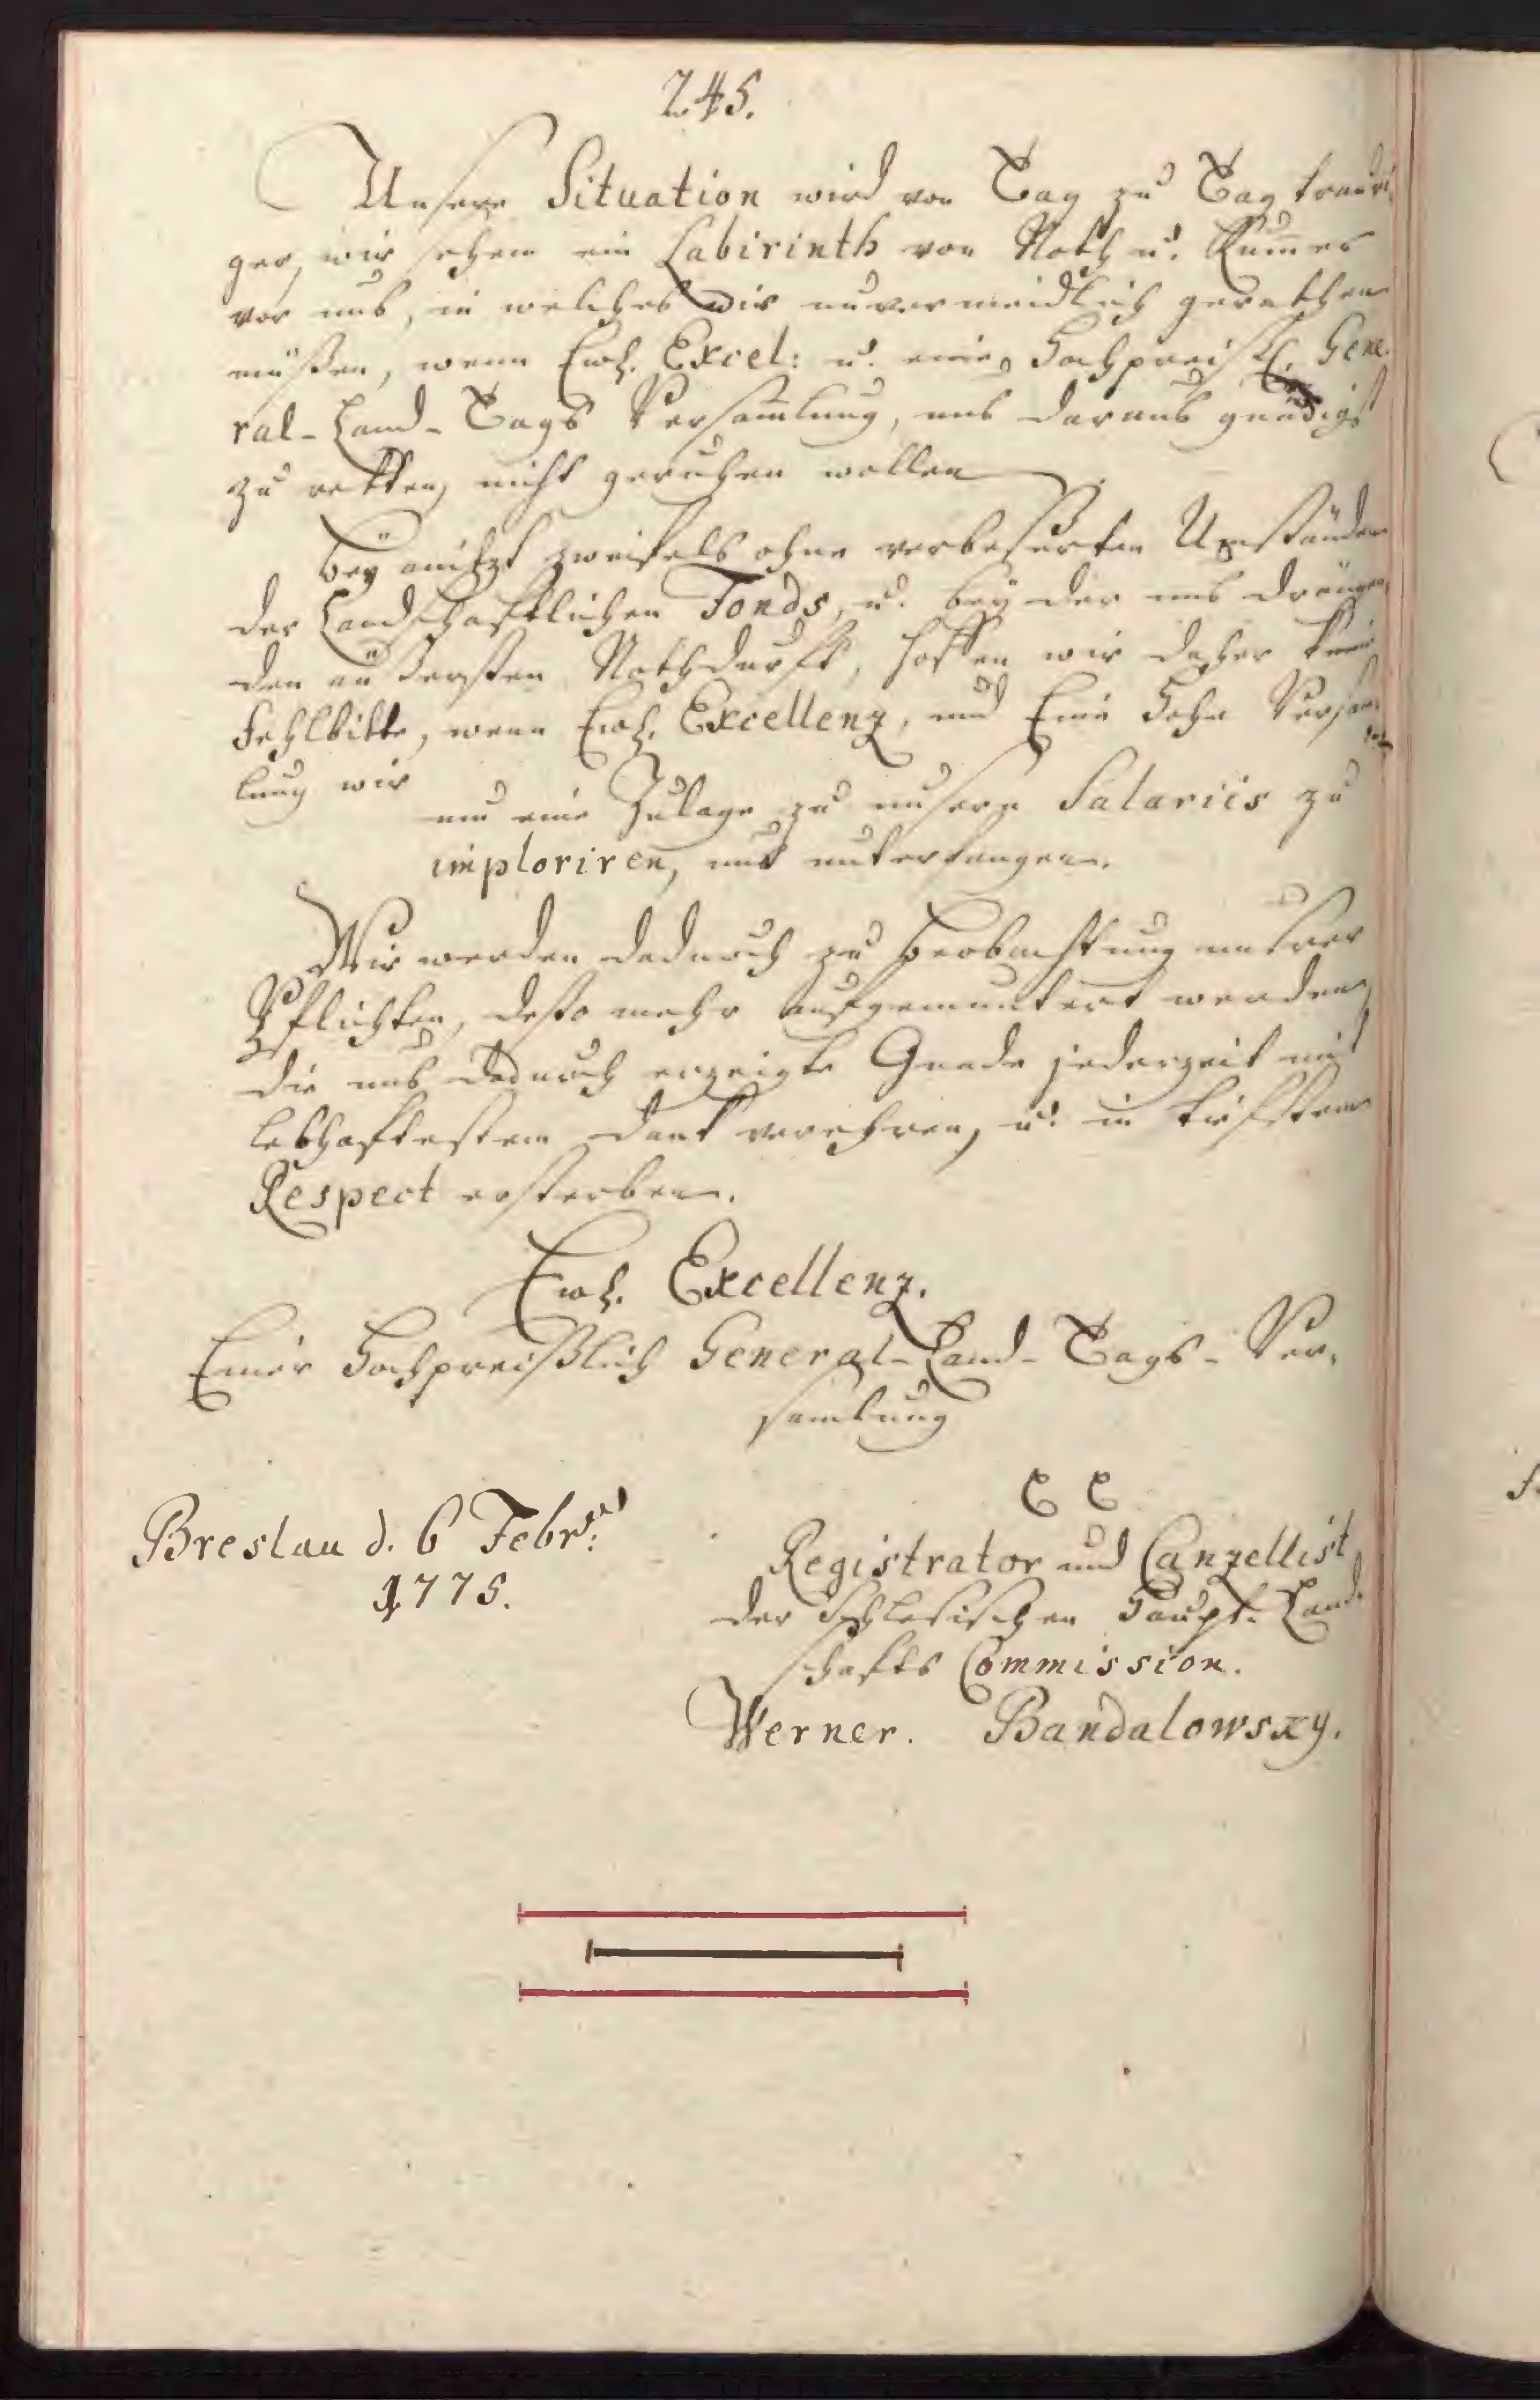 245.
Unsere Situation wird von Tag zu Tag trauri-
ger, wir sehen ein Labirinth von Noth u. Kum̅er
vor uns, in welches wir unvermeidlich gerathen
müßen, wenn Ew. Excel: u. eine Hochpreißl. Gene-
ral-Land-Tags Versam̅lung, uns daraus gnädigst
zu retten, nicht geruhen wollen.
Bey anitzt zweifels ohne verbeßerten Umständen
der Landschaftlichen Fonds, u. bey der uns drängen-
den äußersten Nothdurft, hoffen wir daher keine
Fehlbitte, wenn Ew. Excellenz, und Eine Hohe Versam-
lung wir
um eine Zulage zu unsern Salariis zu
imploriren, uns unterfangen.
Wir werden dadurch zu Beobachtung unsrer
Pflichten, desto mehr aufgemuntert werden,
die uns dadurch erzeigte Gnade jederzeit mit
lebhaftestem Dank verehren, u. in tiefstem
Respect ersterben.
Ew. Excellenz.
Einer Hochpreißlich General-Land-Tags-Ver-
samlung
Breslau d. 6 Febr:
1775.
Registrator und Canzellist
der Schlesischen Haupt-Land-
schafts Commission.
Werner. Bandalowsky.